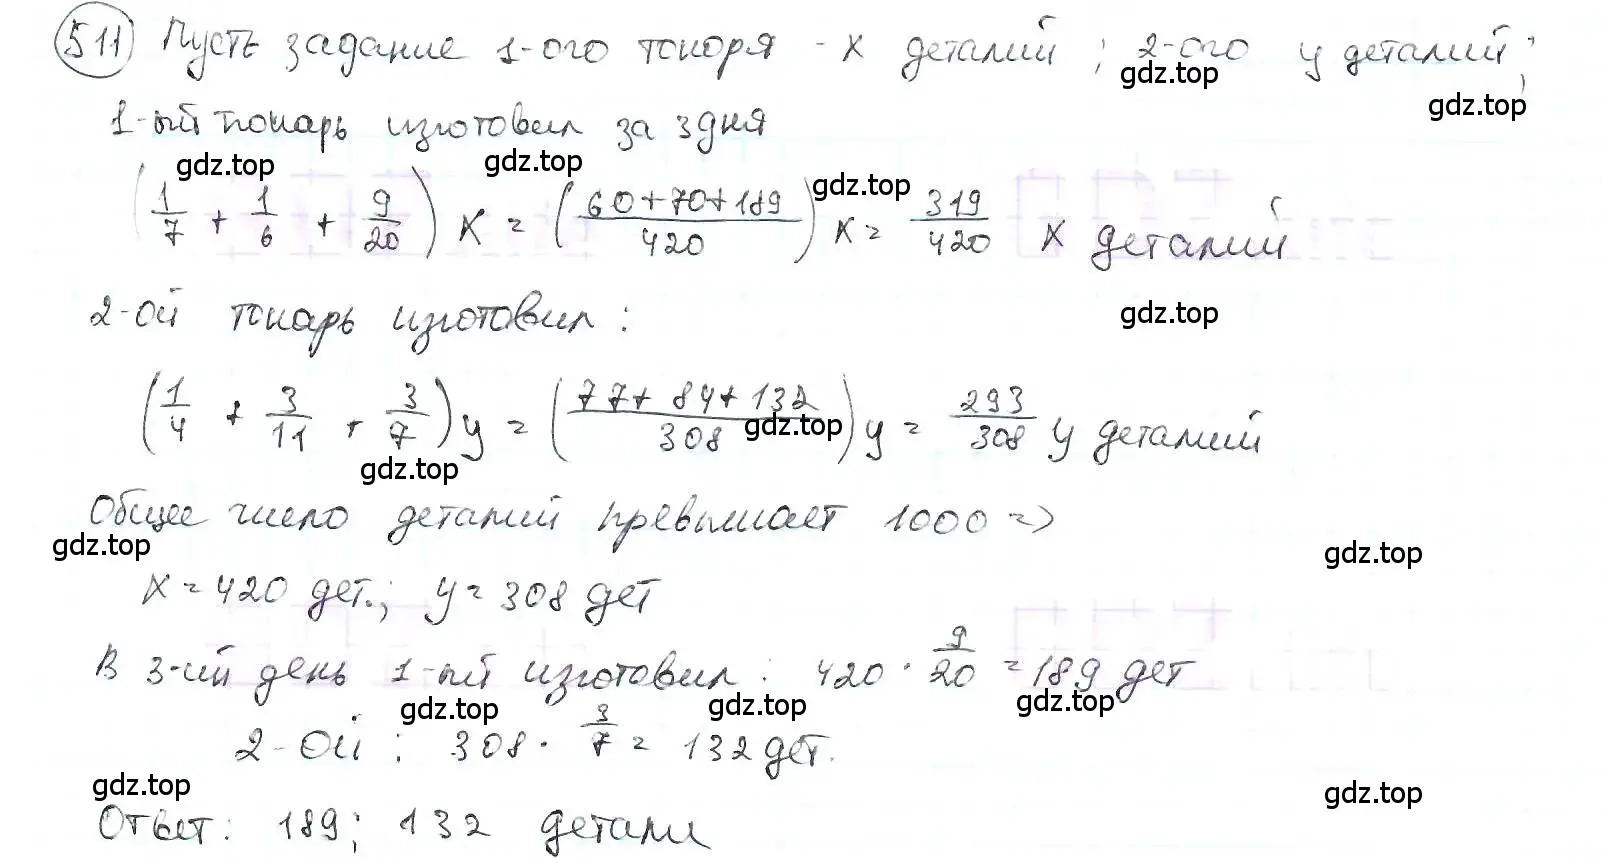 511 Пусть задание 1-ого токоря - x деталий ; 2-ого y деталий ;
gdz.top gdz.top
1-ый токарь изготовил за 3 дня
gdz.top gdz.top gdz.top
(1/7 + 1/6 + 9/20) x = (60+70+189/420) x = 319/420 x деталий
2-ой токарь изготовил :
gdz.top
(1/4 + 3/11 + 3/7) y = (77+84+132/308) y = 293/308 y деталий
gdz.top gdz.top
Общее число деталий превышает 1000 =>
gdz.top gdz.top
x = 420 дет.; y = 308 дет
В 3-ий день 1-ый изготовил : 420 · 9/20 = 189 дет
gdz.top gdz.top gdz.top
2-ой : 308 · 3/7 = 132 дет.
gdz.top gdz.top
Ответ: 189; 132 детали